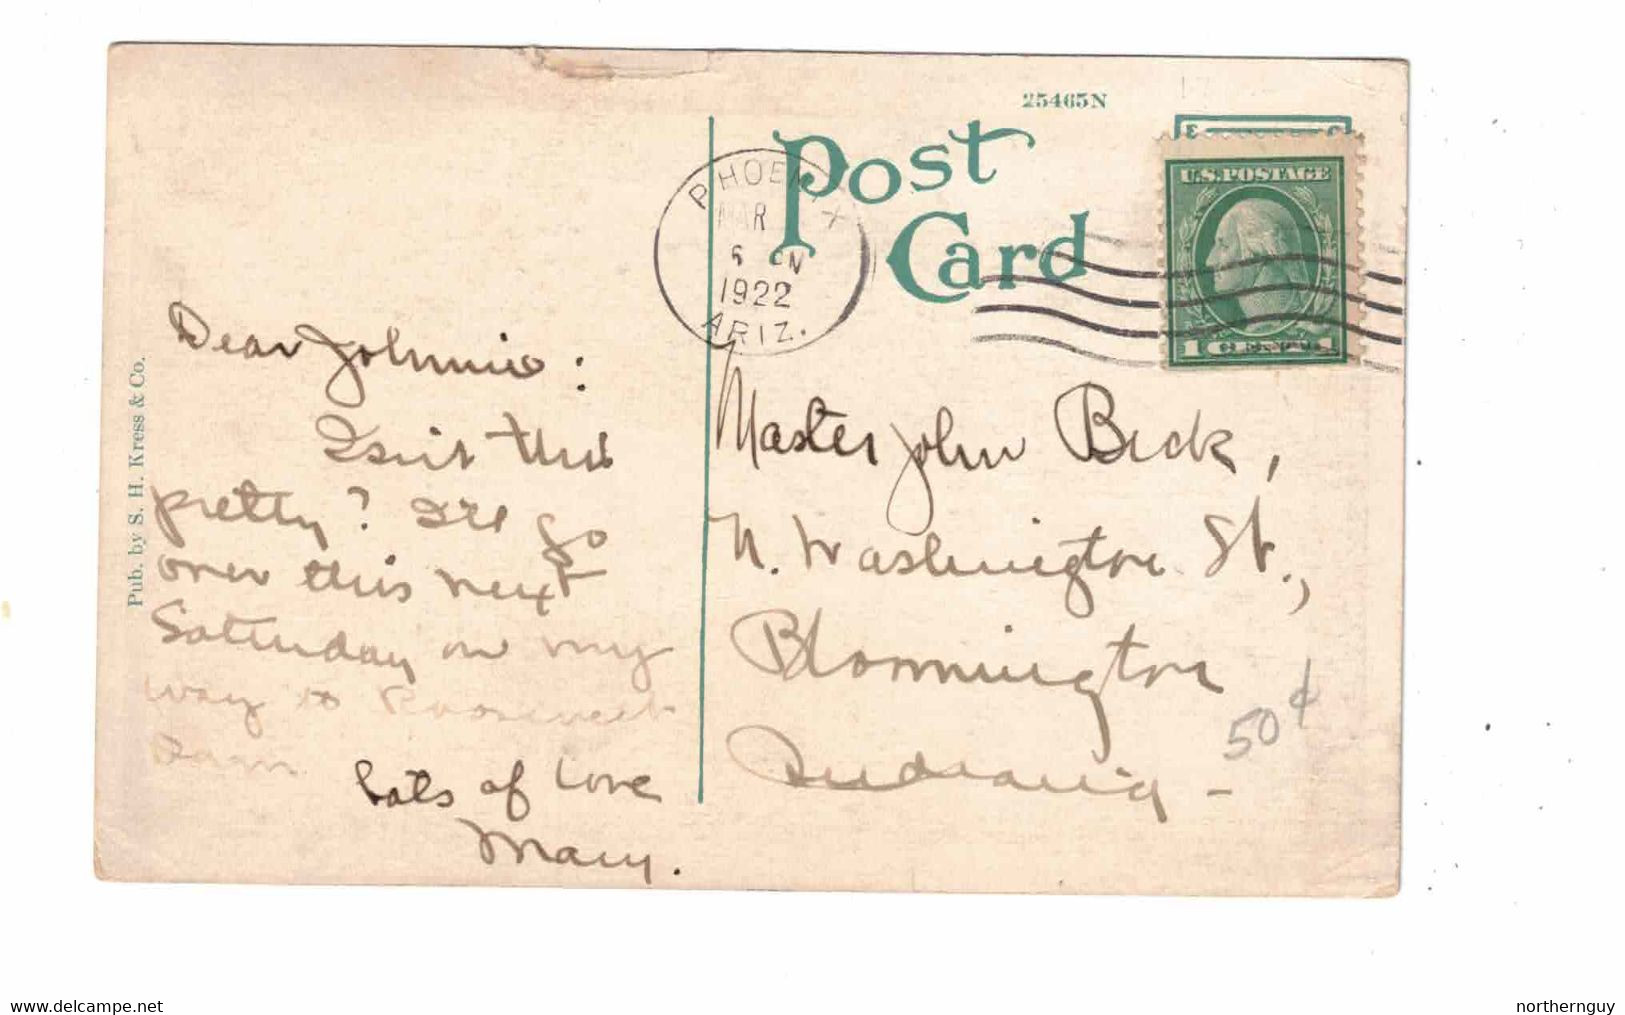 25465N
Post
Card
U.S. POSTAGE
1 CENT 1
PHOENIX
MAR
6
1922
ARIZ.
Pub. by S. H. Kress & Co.
Dear Johnnie:
Isn't this
pretty? I'll go
over this next
Saturday on my
way to Roosevelt
Dam
Lots of love
Mary.
Master John Beck,
N. Washington St.,
Bloomington
Indiana -
50¢
www.delcampe.net
northernguy